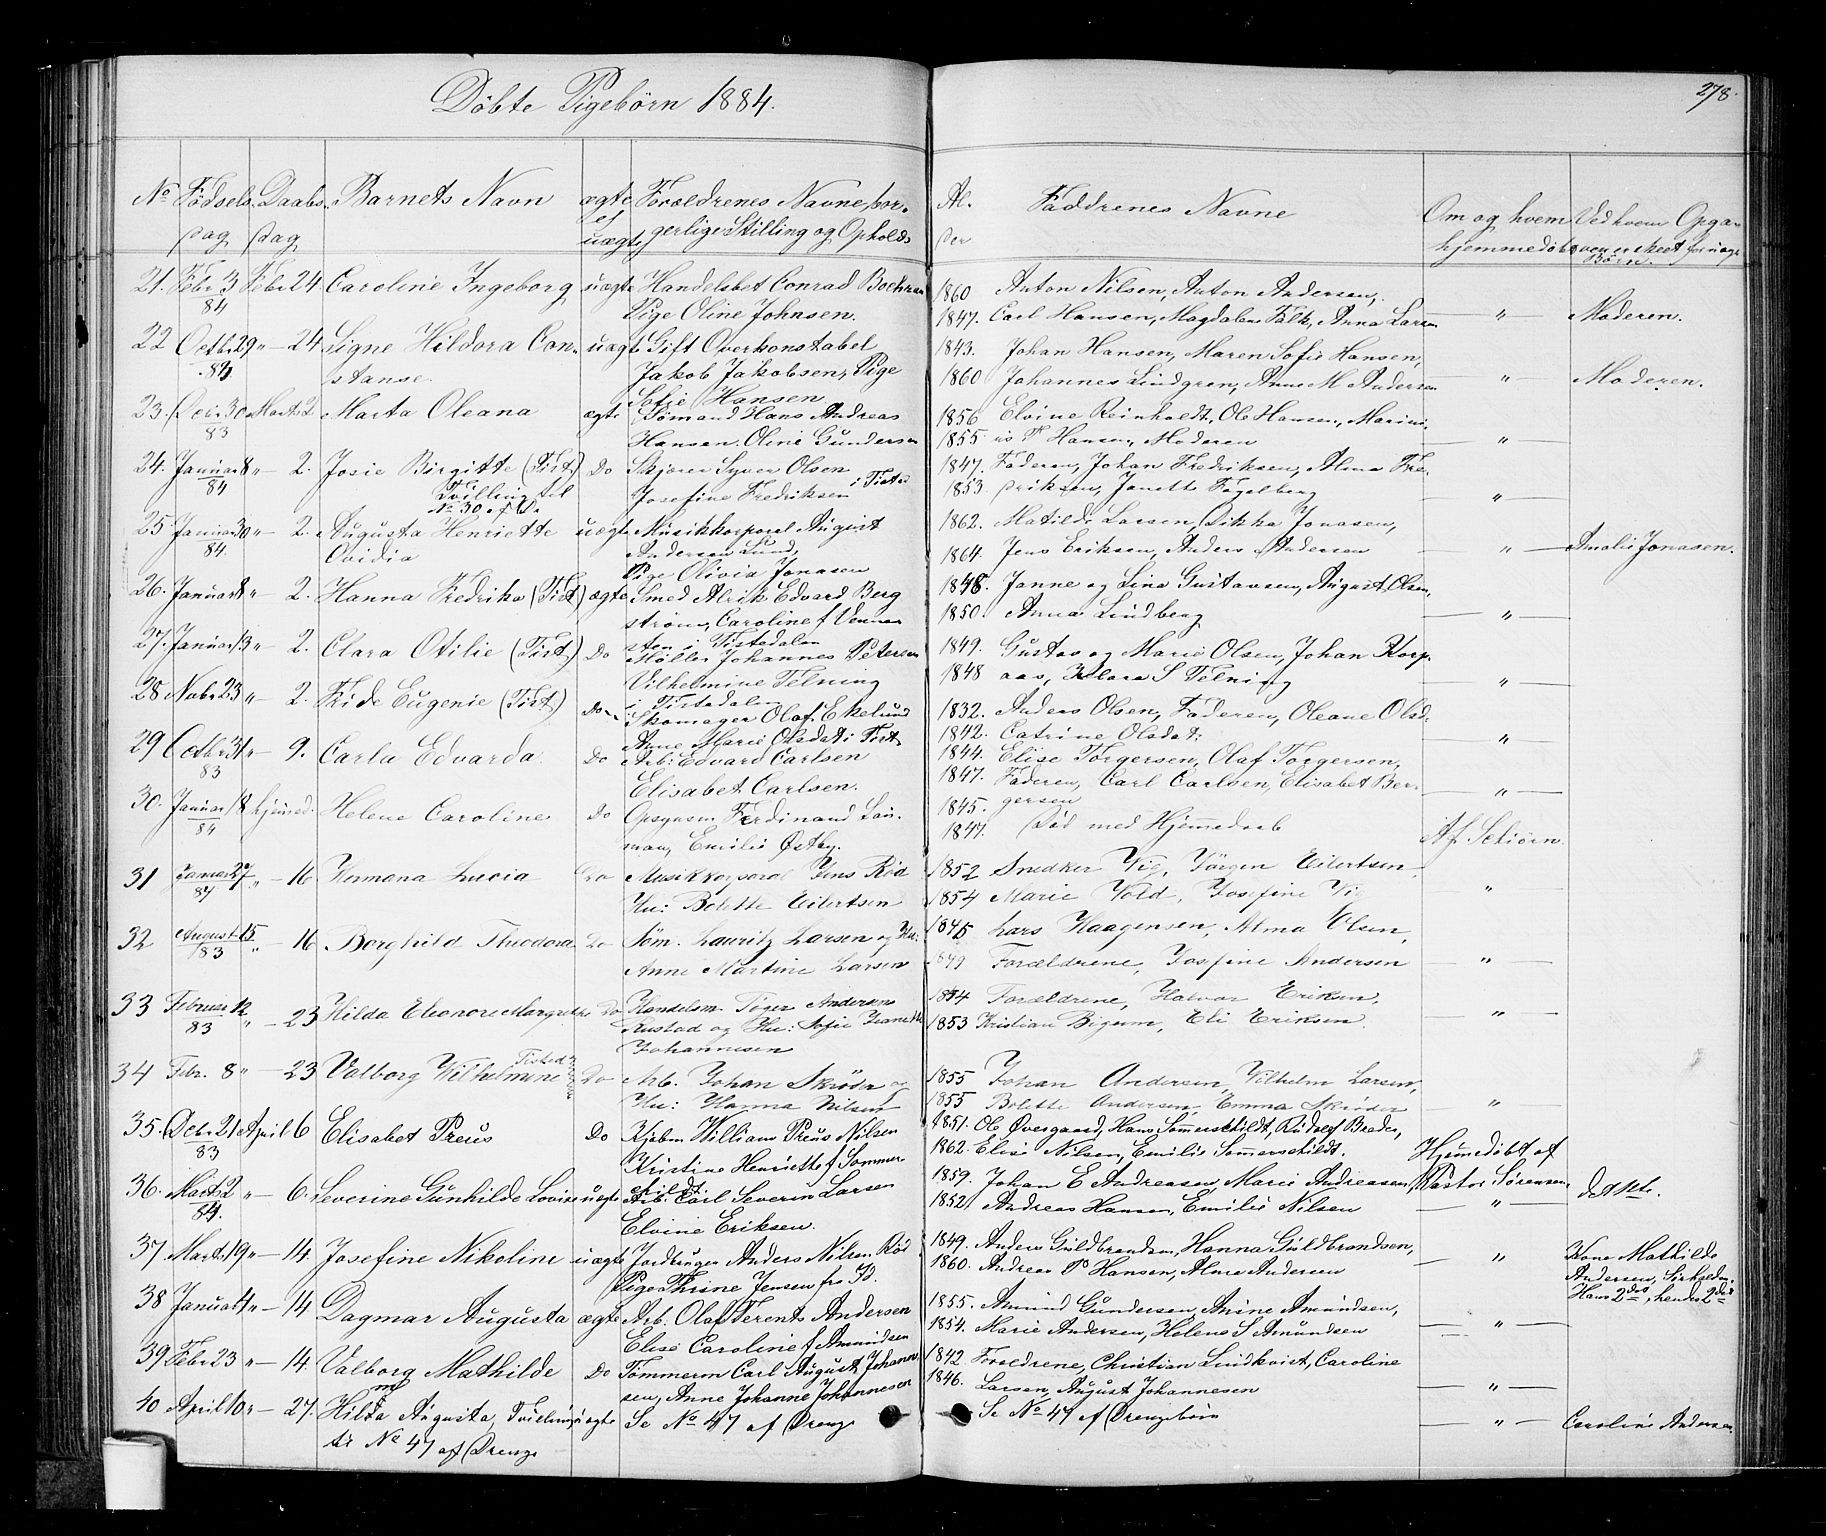 278.
Döbte Pigebörn 1884.
No Födsels- Daabs- Barnets Navn ægte Forældrenes Navne, bor- Al- Faddrenes Navne Om og hvem Ved hvem Opga-
dag dag el uægte gerlige Stilling og Opholds der hjemmedöbt ven er skeet for uægte Börn.
21. Febr 3 Febr 24 Caroline Ingeborg uægte Handelsbet Conrad 1860 Anton Nilsen, Anton Andersen,
84 Pige Oline Johnsen. 1847. Carl Hansen, Magdalene Falk, Anna Larsen " Moderen.
22 Octbr 29 " 24 Signe Hildora Con- uægte Gift Overkonstabel 1843. Johan Hansen, Maren Sofie Hansen,
83 stanse. Jakob Jakobsen, Pige 1860 Johannes Lindgren, Anne M Andersen " Moderen.
Sofie Hansen
23. Dec 30 Marts 2 Marta Oleana ægte Sömand Hans Andreas 1856 Elvine Reinholdt, Ole Hansen, Marini-
83 Hansen. Oline Gundersen 1855 us P Hansen, Moderen "
24. Januar 8 " 2. Josie Birgitte (Tist.) Do Skjerer Syver Olsen 1847. Faderen, Johan Fredriksen, Alma Fre-
84 Tvilling til Josefine Fredriksen i Tistad 1853. driksen, Janette Fogelberg "
No 30 af D.
25 Januar 30 " 2. Augusta Henriette uægte Musikkorporal August 1862. Matilde Larsen, Dikka Jonasen,
84. Ovidia Andersen Lund, 1864. Jens Eriksen, Anders Andersen " Amalie Jonasen.
Pige Olivia Jonasen
26. Januar 8 " 2. Hanna Fredrika (Tist.) ægte Smed Alrik Edvard Berg 1848. Janne og Lina Gustavsen, August Olsen,
ström, Caroline f Venner- 1850. Anna Lindberg "
sten i Tistedalen
27. Januar 13 " 2. Clara Otilie (Tist.) Do Möller Johannes Petersen 1849. Gustav og Marie Olsen, Johan Korp-
Vilhelmine Telning 1848 aas, Klara S Telning "
i Tistedalen
28 Nobr 23 " 2. Fride Eugenie (Tist.) Do Skomager Olaf Ekelund 1832. Anders Olsen, Faderen, Oleane Olsd.
Anne Marie Olsdat i Tist. 1842. Catrine Olsdat: "
29 Octbr 31 " 9. Carla Edvarda Do Arb: Edvard Carlsen 1844. Elise Torgersen, Olaf Torgersen,
83 Elisabet Carlsen. 1847. Faderen, Carl Carlsen, Elisabet Ber- "
gersen
30. Januar 18 hjemmed. Helene Caroline Do Opsynsm Ferdinand Lau- 1845.
84 man, Emilie Østby. 1847. Död med Hjemmedaab Af
31 Januar 27 " 16 Hermana Lucia Do Musikkorporal Jens Röd 1852 Snedker Vig, Jörgen Eilertsen,
84 Hu: Bolette Eilertsen 1854 Marie Vold, Josefine Vig "
32 August 15 " 16 Borghild Theodora Do Söm. Lauritz Larsen og Hu: 1845 Lars Haagensen, Alma Olsen,
83 Anne Martine Larsen 1849 Forældrene, Josefine Andersen "
33 Februar 12 " 23 Hilda Eleonore Margrethe Do Handelsm. Töger Andersen 1854 Forældrene, Halvor Eriksen,
83 Rustad og Hu: Sofie Jeanette 1853 Kristian Bigum, Eli Eriksen. "
Johannesen
34 Febr. 8 " 23 Valborg Wilhelmine Tistad Do Arb. Johan Skröder og 1855 Johan Andersen, Vilhelm Larsen,
Hu: Hanna Nilsen 1855 Bolette Andersen, Emma Skröder "
35. Dcbr 21 April 6 Elisabet Preus Do Kjöbm William Preus Nilsen 1851. Ole Övergaard, Hans Sommerschildt, Rudolf Brader,
83 Kristine Henriette f Sommer- 1862. Elise Nilsen, Emilie Sommerschildt. Hjemmedöbt af
schildt Pastor Sörensen
36. Marts 2 " 6. Severine Gunhilde Lovise uægte Arb. Carl Severin Larsen 1859. Johan E Andreasen, Marie Andreasen,
84. Elvine Eriksen. 1852 Andreas Hansen, Emilie Nilsen "
37. Marts 19 " 14. Josefine Nikoline uægte Jordbruger Anders Nilsen Röd 1849. Anders Guldbrandsen, Hanna Guldbrandsen,
Pige Thrine Jensen fra Id. 1860. Andreas P Hansen, Alma Andersen " Kone Mathilde
Andersen,
Hans 2det, hendes 2det
38 Januar 4 " 14 Dagmar Augusta ægte Arb. Olaf Terents Andersen 1855. Amund Gundersen, Anine Amundsen,
Elise Caroline f Amundsen 1854. Marie Andersen, Helene S Amundsen "
39 Febr 23 " 14. Valborg Mathilde Do Tömmerm Carl August Johann- 1842 Forældrene, Christian Lindkvist, Caroline
sen, Anne Johanne Johannesen 1846. Larsen, August Johannesen "
40 April 10 " 27. Hilda Augusta, Tvilling uægte Se No 47 af Drenge Se No 47 af Drengebörn " Caroline Andersen.
til No 47 af Drenge